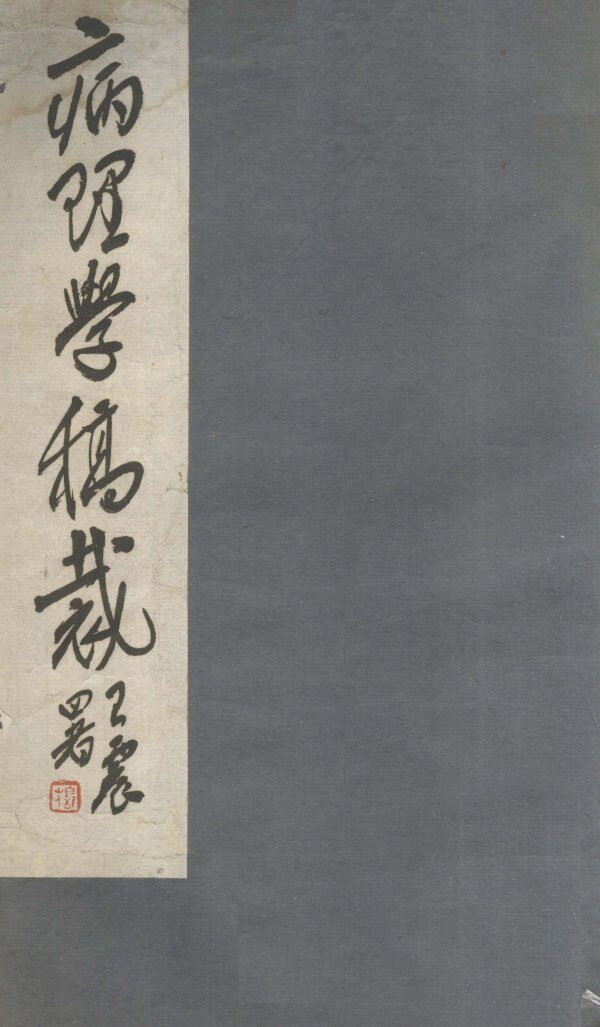 病理學稿裁
王震
署